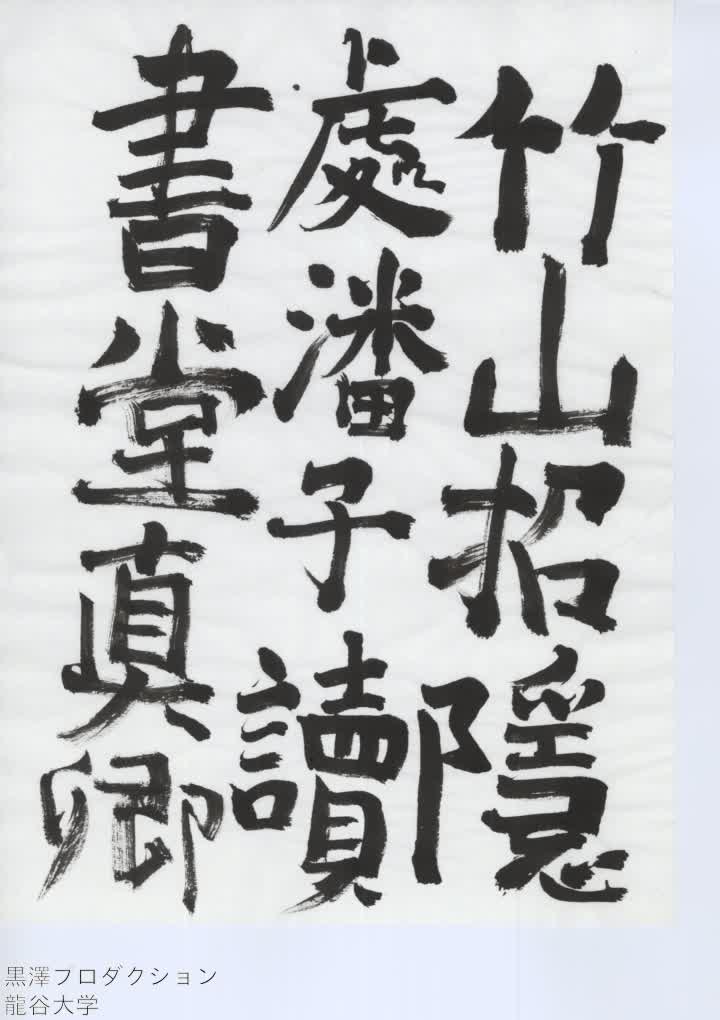 竹山招隱
處潘子讀
書堂真卿
黒澤プロダクション
龍谷大学